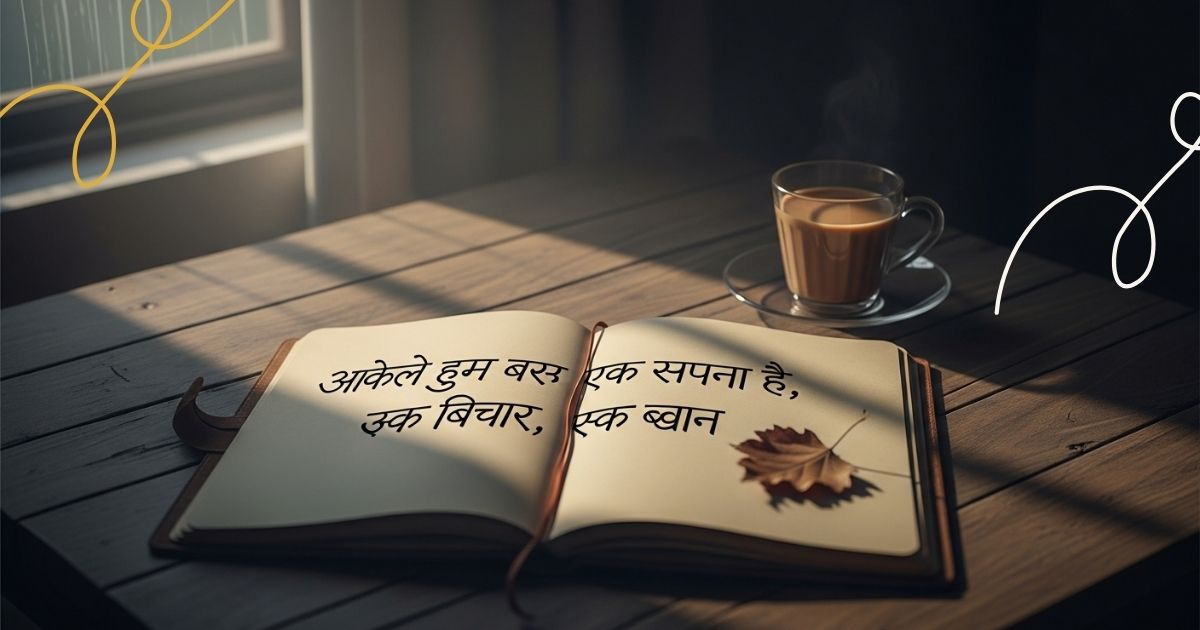 आकेले हुम बस एक सपना है,
उक बिचार, एक ब्वान